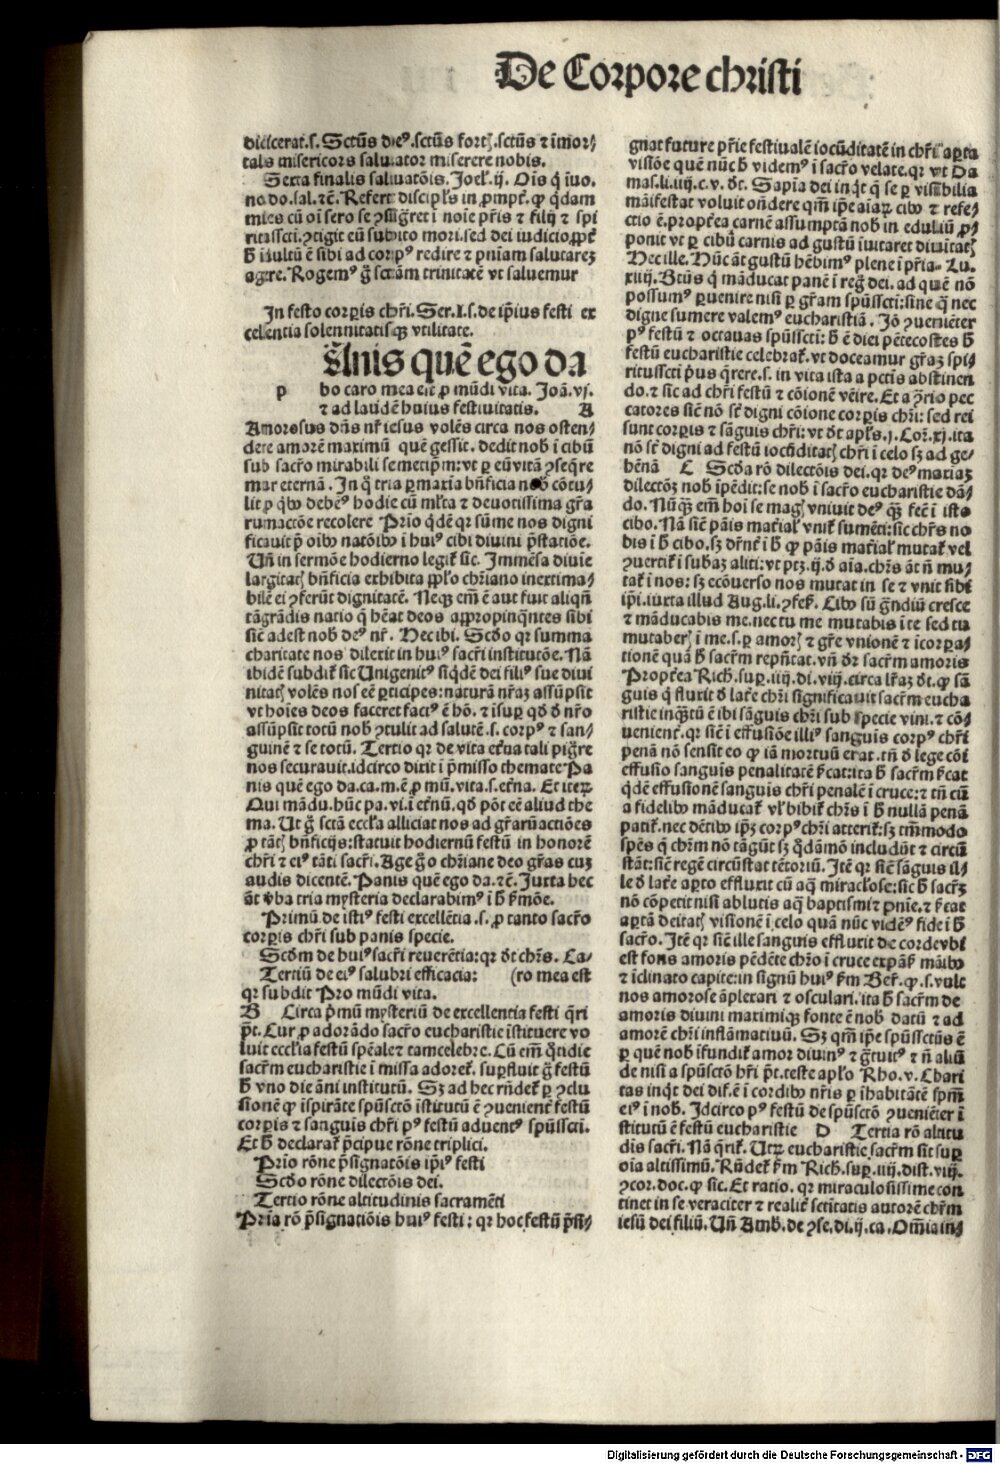 De Corpore christi
dicicerat.s. Sctūs deꝰ.sctūs fortꝭ.sctūs ⁊ īmor⸗
talis misericors saluator miserere nobis.
Sexta finalis saluatōis. Joel.ij. Oīs q̇ īuo.
no.do.sal.⁊c̄. Refert discipl̓s in ꝓmpt̓. ꝙ q̇dam
mies cū oī sero se ꝯsigret ī noīe pr̄is ⁊ filij ⁊ spi
ritussc̄ti.ꝯtigit eū subito mori.sed dei iudicio
agere. Rogemꝰ g̊ sctām trinitatē vt saluemur
In festo corꝑis chr̄i. Ser.I.s.de ip̄ius festi ex
celentia solennitatisqꝫ vtilitate.
Anis quē ego da
p bo caro mea est ꝓ mūdi vita. Joā.vj.
⁊ ad laudē huius festiuitatis. A
Amorosus dn̄s nr̄ iesus volēs circa nos osten⸗
dere amorē maximū quē gessit. dedit nob̄ ī cibū
sub sacr̄o mirabili semetip̄m: vt ꝑ eū vitā ꝯseq̄re
mur eternā. In q̄ tria ꝑmaxīa bn̄ficia nob̄ cōtu⸗
lit ꝓ qͥbꝰ debēꝰ hodie cū ml̓ta ⁊ deuotissima gr̄a
rumactōe recolere Prīo qͥdē qr sūme nos digni
ficauit ꝓ oībꝰ natōibꝰ ī huiꝰ cibi diuini p̄statiōe.
Un̄ in sermōe hodierno legit̓ sic. Immēsa diuīe
largitatꝭ bn̄ficia exhibita ppl̓o chr̄iano inextima⸗
bilē ei ꝯferūt dignitatē. Neqꝫ em̄ ē aut fuit aliqn̄
tā grādis natio q̄ hēat deos appropinq̄ntes sibi
sicͣ adest nob̄ deꝰ nr̄. Hec ibi. Scd̄o qr summa
charitate nos dilexit in huiꝰ sacr̄i institutōe. Nā
ibidē subdit̓ sic Unigenitꝰ siqͥdē dei filiꝰ sue diui
nitatꝭ volēs nos eē ꝑticipes: naturā nr̄aꝫ assūpsit
vt hoīes deos faceret factꝰ ē hō. ⁊ īsuꝑ qd̓ d̓ nr̄o
assūpsit totū nob̄ ꝯtulit ad salutē.s. corpꝰ ⁊ san⸗
guinē ⁊ se totū. Tertio qr de vita et̓na tali pig̊re
nos securauit.idcirco dixit ī p̄misso themate Pa
nis quē ego da.ca.m.ē ꝓ mū.vita.s.et̓na. Et iteꝝ
Qui mādu.hūc pa.vi.ī et̓nū. qd̓ pōt eē aliud the
ma. Ut g̊ sctā eccl̓a alliciat nos ad gr̄arū actiōes
ꝓ tātꝭ bn̄ficijs: statuit hodiernū festū in honorē
chr̄i ⁊ eiꝰ tāti sacr̄i. Age g̊ o chr̄iane deo gr̄as cuꝫ
audis dicentē. Panis quē ego da.⁊c̄. Juxta hec
āt v̓ba tria mysteria declarabimꝰ ī h̄ s̓mōe.
Primū de istiꝰ festi excellētia.s. ꝓ tanto sacr̄o
corꝑis chr̄i sub panis specie.
Scd̄m de huiꝰ sacr̄i reuerētia: qr dt̓ chr̄s. Ca⸗
Tertiū de eiꝰ salubri efficacia: (ro mea est
qr subdit Pro mūdi vita.
B Circa p̄mū mysteriū de excellentia festi q̄ri
pt̄. Cur ꝓ adorādo sacr̄o eucharistie īstituere vo
luit eccl̓ia festū sp̄eale ⁊ tam celebre. Cū em̄ qͦtidie
sacr̄m eucharistie ī missa adoret̓. suꝑfluit g̊ festū
h̄ vno die āni institutū. Sꝫ ad hec rn̄det̓ ꝑ ꝯclu
sionē ꝙ īspirāte spūsctō īstitutū ē ꝯuenient̓ festū
corꝑis ⁊ sanguīs chr̄i pꝰ festū aduentꝰ spūssc̄ti.
Et h̄ declarat̓ p̄cipue rōne triplici.
Prīo rōne p̄signatōis ip̄iꝰ festi
Scd̄o rōne dilectōis dei.
Tertio rōne altitudinis sacramēti
Prīa rō p̄signatiōis huiꝰ festi: qr hoc festū p̄si⸗
gnat future pr̄ie festiualē iocūditatē in chr̄i aꝑta
vissiōe quē nūc h̄ videmꝰ ī sacr̄o velate.qr vt Da
mas.li.iiij.c.v. dt̓. Sapīa dei inqͥt q̄ se ꝑ visibilia
māifestat voluit on̄dere qm̄ ip̄e aīaꝝ cibꝰ ⁊ refe⸗
ctio ē.propt̓ea carnē assumptā nob̄ in eduliū ꝓ⸗
ponit vt ꝑ cibū carnis ad gustū īuitaret diuitatꝭ
Hec ille. Hūc āt gustū hēbimꝰ plene ī pr̄ia. Lu.
xiiij. Btūs q̇ māducat panē ī reg̊ dei. ad quē nō
possumꝰ ꝑuenire nisi ꝑ gr̄am spūssc̄ti: sine q̄ nec
digne sumere valemꝰ eucharistiā. Jō ꝯueniēter
pꝰ festū ⁊ octauas spūssc̄ti: h̄ ē diei pētecostes h̄
festū eucharistie celebrat̓.vt doceamur gr̄aꝫ spi⸗
ritussc̄ti pͥus q̄rere.s. in vita ista a pctīs abstinen
do.⁊ sic ad chr̄i festū ⁊ cōionē vēire. Et a ꝯrio pec
catores sicͣ nō st̓ digni cōione corꝑis chr̄i: sed rei
sunt corꝑis ⁊ sāguis chr̄i: vt dt̓ apl̓s.j.Cor̄.xj.ita
nō st̓ digni ad festū iocūditatꝭ chr̄i ī celo sꝫ ad ge⸗
hēnā C Scd̄a rō dilectōis dei.qr deꝰ maxiaꝫ
dilectōꝫ nob̄ īpēdit: se nob̄ ī sacr̄o eucharistie dā⸗
do. Nūqͣꝫ em̄ hoī se magꝭ vniuit deꝰ qͣꝫ fecͥ ī isto
cibo. Nā sicͣ pāis mat̓ial̓ vnit̓ sumēti: sic chr̄s no
bis ī h̄ cibo.sꝫ dr̄nt̓ ī h̄ ꝙ pāis mat̓ial̓ mutat̓ vel
ꝯuertit̓ ī subaꝫ aliti: vt ptꝫ.ij.d̓ aīa.chr̄s āt n̄ mu⸗
tat̓ ī nos: sꝫ ecōuerso nos mutat in se ⁊ vnit sibi
ip̄i.iuxta illud Aug.li.ꝯfes̓. Cibꝰ sū g̊ndiū cresce
⁊ māducabis me.nec tu me mutabis ī te sed tu
mutaberꝭ ī me.s.ꝑ amorꝭ ⁊ gr̄e vnionē ⁊ īcorꝑa⸗
tionē quā h̄ sacr̄m rep̄ntat.vn̄ dr̄ sacr̄m amoris
Propt̓ea Rich̓.suꝑ.iiij.di.viij.circa lr̄aꝫ dt̓.ꝙ sā
guis q̇ fluxit d̓ lat̓e chr̄i significauit sacr̄m eucha
ristie inqͣtū ē ibi sāguis chr̄i sub specie vini.⁊ cō⸗
uenient̓.qr sicͣ ī effusiōe illiꝰ sanguis corpꝰ chr̄i
penā nō sensit eo ꝙ iā mortuū erat.tn̄ d̓ lege cōi
effusio sanguīs penalitatē p̄cat: ita h̄ sacr̄m p̄cat
qͥdē effusionē sanguis chr̄i penalē ī cruce: ⁊ tn̄ cū
a fidelibꝰ māducat̓ vl̓ bibit̓ chr̄s ī h̄ nullā penā
patit̓.nec dētibꝰ ip̄ꝫ corpꝰ chr̄i atterit̓: sꝫ tm̄modo
spēs q̄ chr̄m nō tāgūt sꝫ qͥdāmō includūt ⁊ circū
stāt: sicͣ regē circūstat tētoriū. Itē qr sicͣ sāguis il⸗
le d̓ lat̓e aꝑto effluxit cū aq̄ miracl̓ose: sic h̄ sacr̄ꝫ
nō cōpetit nisi ablutis aq̄ baptismi ⁊ pnīe.⁊ p̄cat
aꝑtā deitatꝭ visionē ī celo quā nūc vidēꝰ fide ī h̄
sacr̄o. Itē qr sicͣ ille sanguis effluxit de corde vbi
est fons amoris pēdēte chr̄o ī cruce expāsꝭ māibꝰ
⁊ īclinato capite: in signū huiꝰ s̓m Ber̄.ꝙ.s.vult
nos amorose āplexari ⁊ osculari. ita h̄ sacr̄m de
amoris diuini maximiqꝫ fonte ē nob̄ datū ⁊ ad
amorē chr̄i inflāmatiuū. Sꝫ qm̄ ip̄e spūssctūs ē
ꝑ quē nob̄ īfundit̓ amor diuinꝰ ⁊ gͣtuitꝰ ⁊ n̄ aliū
de nisi a spūsctō hr̄i pt̄.teste apl̓o Rho.v. Chari
tas inqͥt dei dif.ē ī cordibꝰ nr̄is ꝑ īhabitātē spm̄
eiꝰ ī nob̄. Idcirco pꝰ festū de spūsctō ꝯueniēter ī
stitutū ē festū eucharistie D Tertia rō altitu
dis sacr̄i. Nā q̄rit̓. Utꝝ eucharistie sacr̄m sit suꝑ
oīa altissimū. Rn̄det̓ s̓m Rich̓.suꝑ.iiij.dist.viij.
ꝯcor.doc.ꝙ sic. Et ratio. qr miraculosissime con
tinet in se veraciter ⁊ realit̓ sctītatis autorē chr̄m
iesū dei filiū. Un̄ Amb̓.de ꝯse.di.ij.ca. Om̄ia in⸗
Digitalisierung gefördert durch die Deutsche Forschungsgemeinschaft - DFG